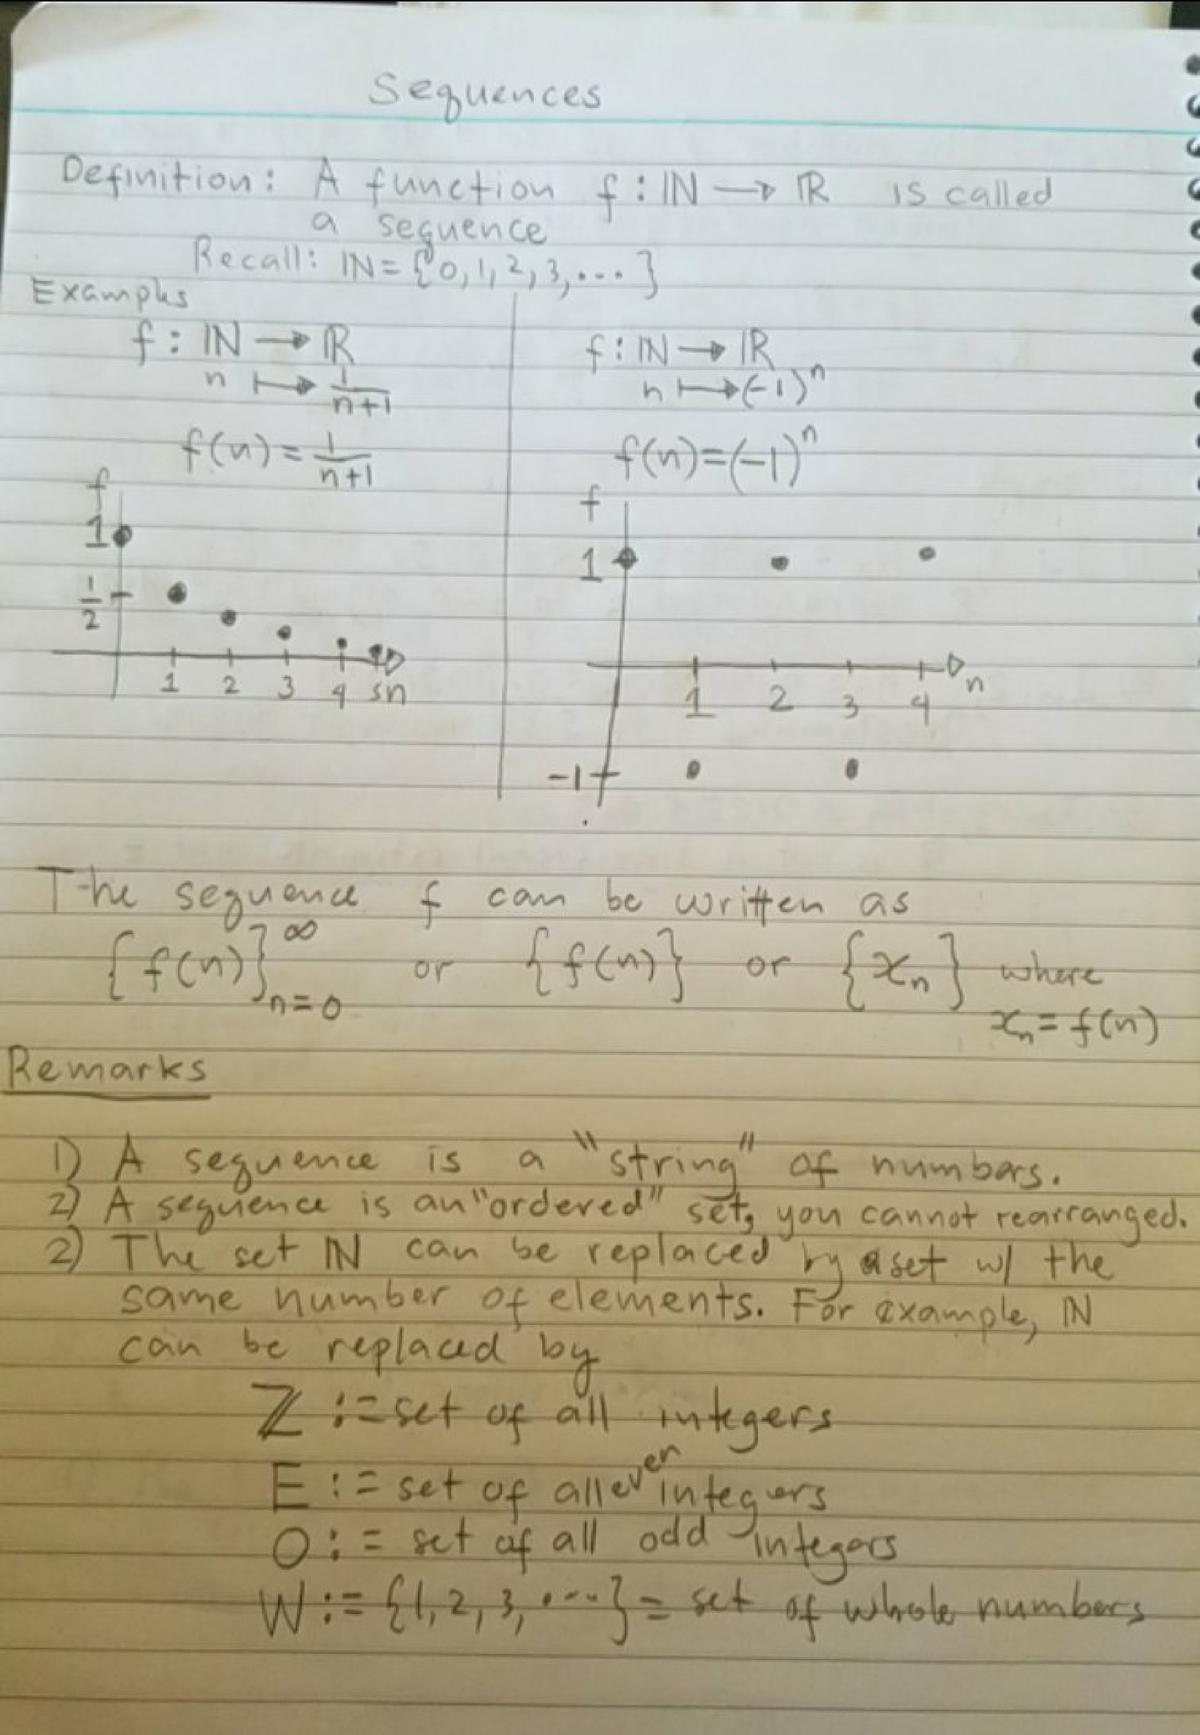 Sequences
Definition: A function f : ℕ → ℝ is called
a sequence
Recall: ℕ = {0, 1, 2, 3, ...}
Examples
f : ℕ → ℝ
n ↦ 1/(n+1)
f(n) = 1/(n+1)
f
1
1/2
1 2 3 4 5 n
f : ℕ → ℝ
n ↦ (-1)^n
f(n) = (-1)^n
f
1
1 2 3 4 n
-1
The sequence f can be written as
{f(n)}_{n=0}^∞ or {f(n)} or {x_n} where
x_n = f(n)
Remarks
1) A sequence is a "string" of numbers.
2) A sequence is an "ordered" set, you cannot rearranged.
2) The set ℕ can be replaced by a set w/ the
same number of elements. For example, ℕ
can be replaced by
ℤ := set of all integers
E := set of all even integers
O := set of all odd integers
W := {1, 2, 3, ...} = set of whole numbers